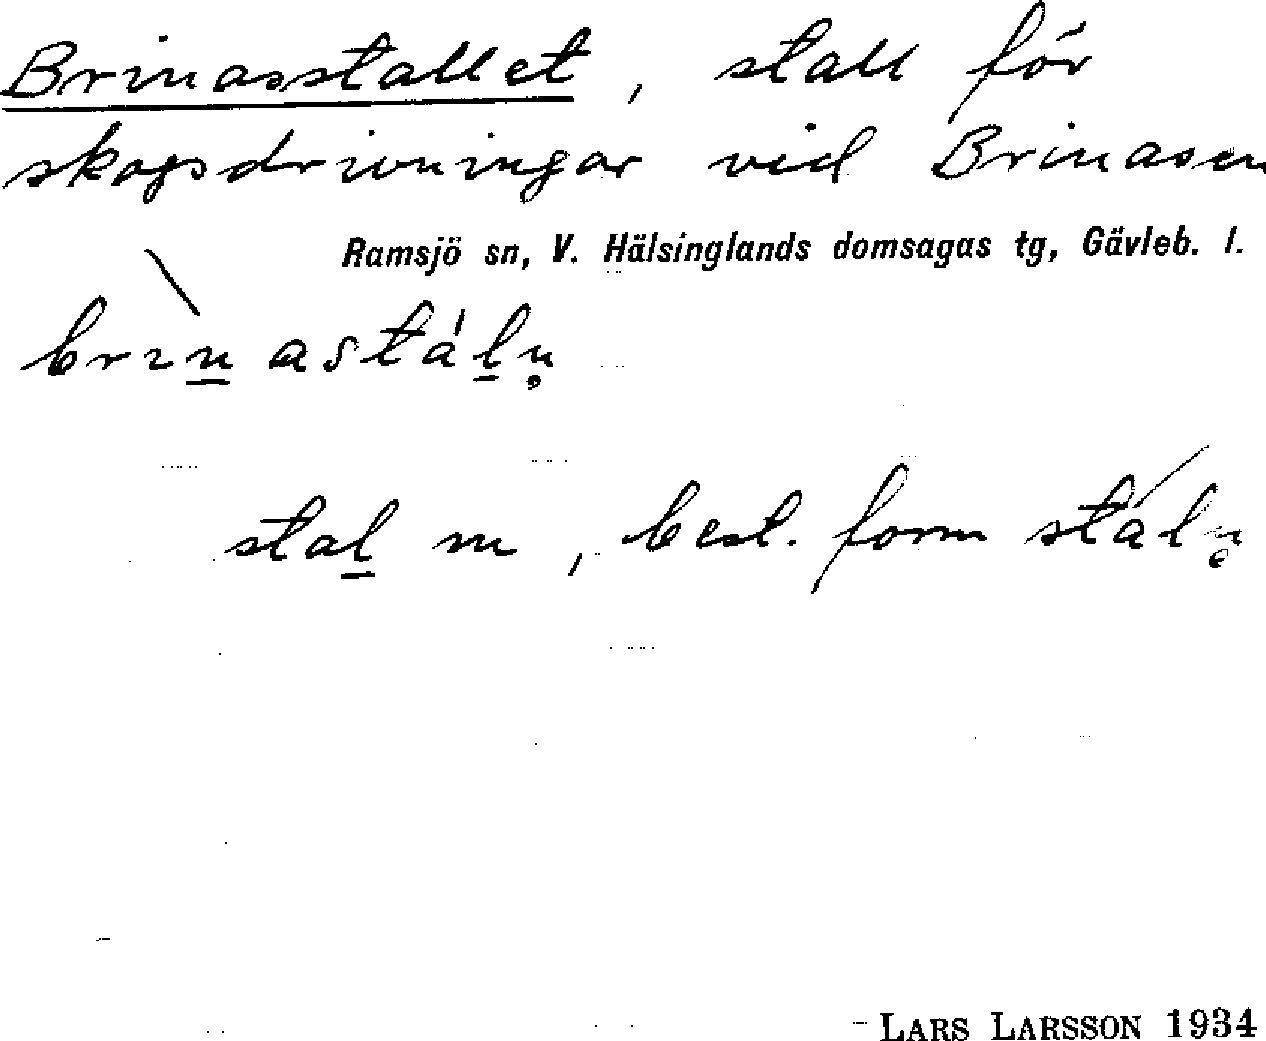 Brinasstallet, stall för
skogsdrivningar vid Brinasen
Ramsjö sn, V. Hälsinglands domsagas tg, Gävleb. l.
brìn̲astál̲n̥
stal̲ m, best. form stáln̥
LARS LARSSON 1934